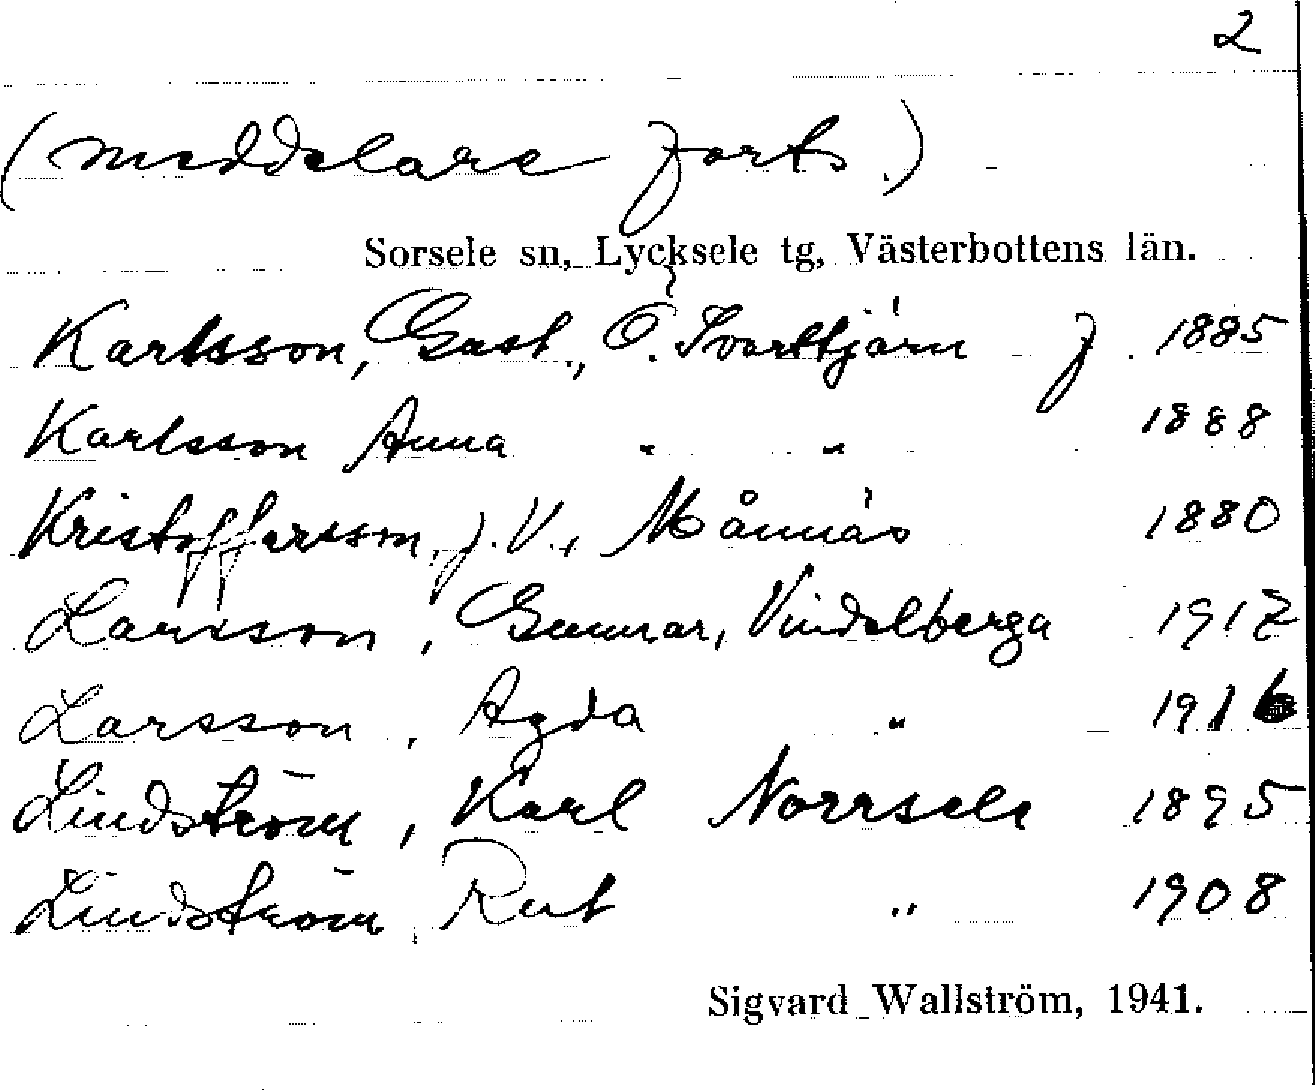 2
(meddelare forts.)
Sorsele sn, Lycksele tg, Västerbottens län.
Karlsson, Gust., Ö. Svarttjärn f. 1885
Karlsson Anna " " 1888
Kristoffersson, J. V., Månnäs 1880
Larsson, Gunnar, Vindelberga 1912
Larsson, Agda " 1916
Lindström, Karl Norrsele 1895
Lindström, Rut " 1908
Sigvard Wallström, 1941.